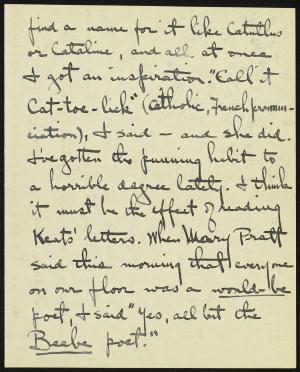 find a name for it like Catullus
or Cataline, and all at once
I got an inspiration. "Call it
Cat-toe-lick" (Catholic, French pronun-
ciation), I said – and she did.
I've gotten the punning habit to
a horrible degree lately. I think
it must be the effect of reading
Keats' letters. When Mary Pratt
said this morning that everyone
on our floor was a would-be
poet, I said "Yes, all but the
Beebe poet."